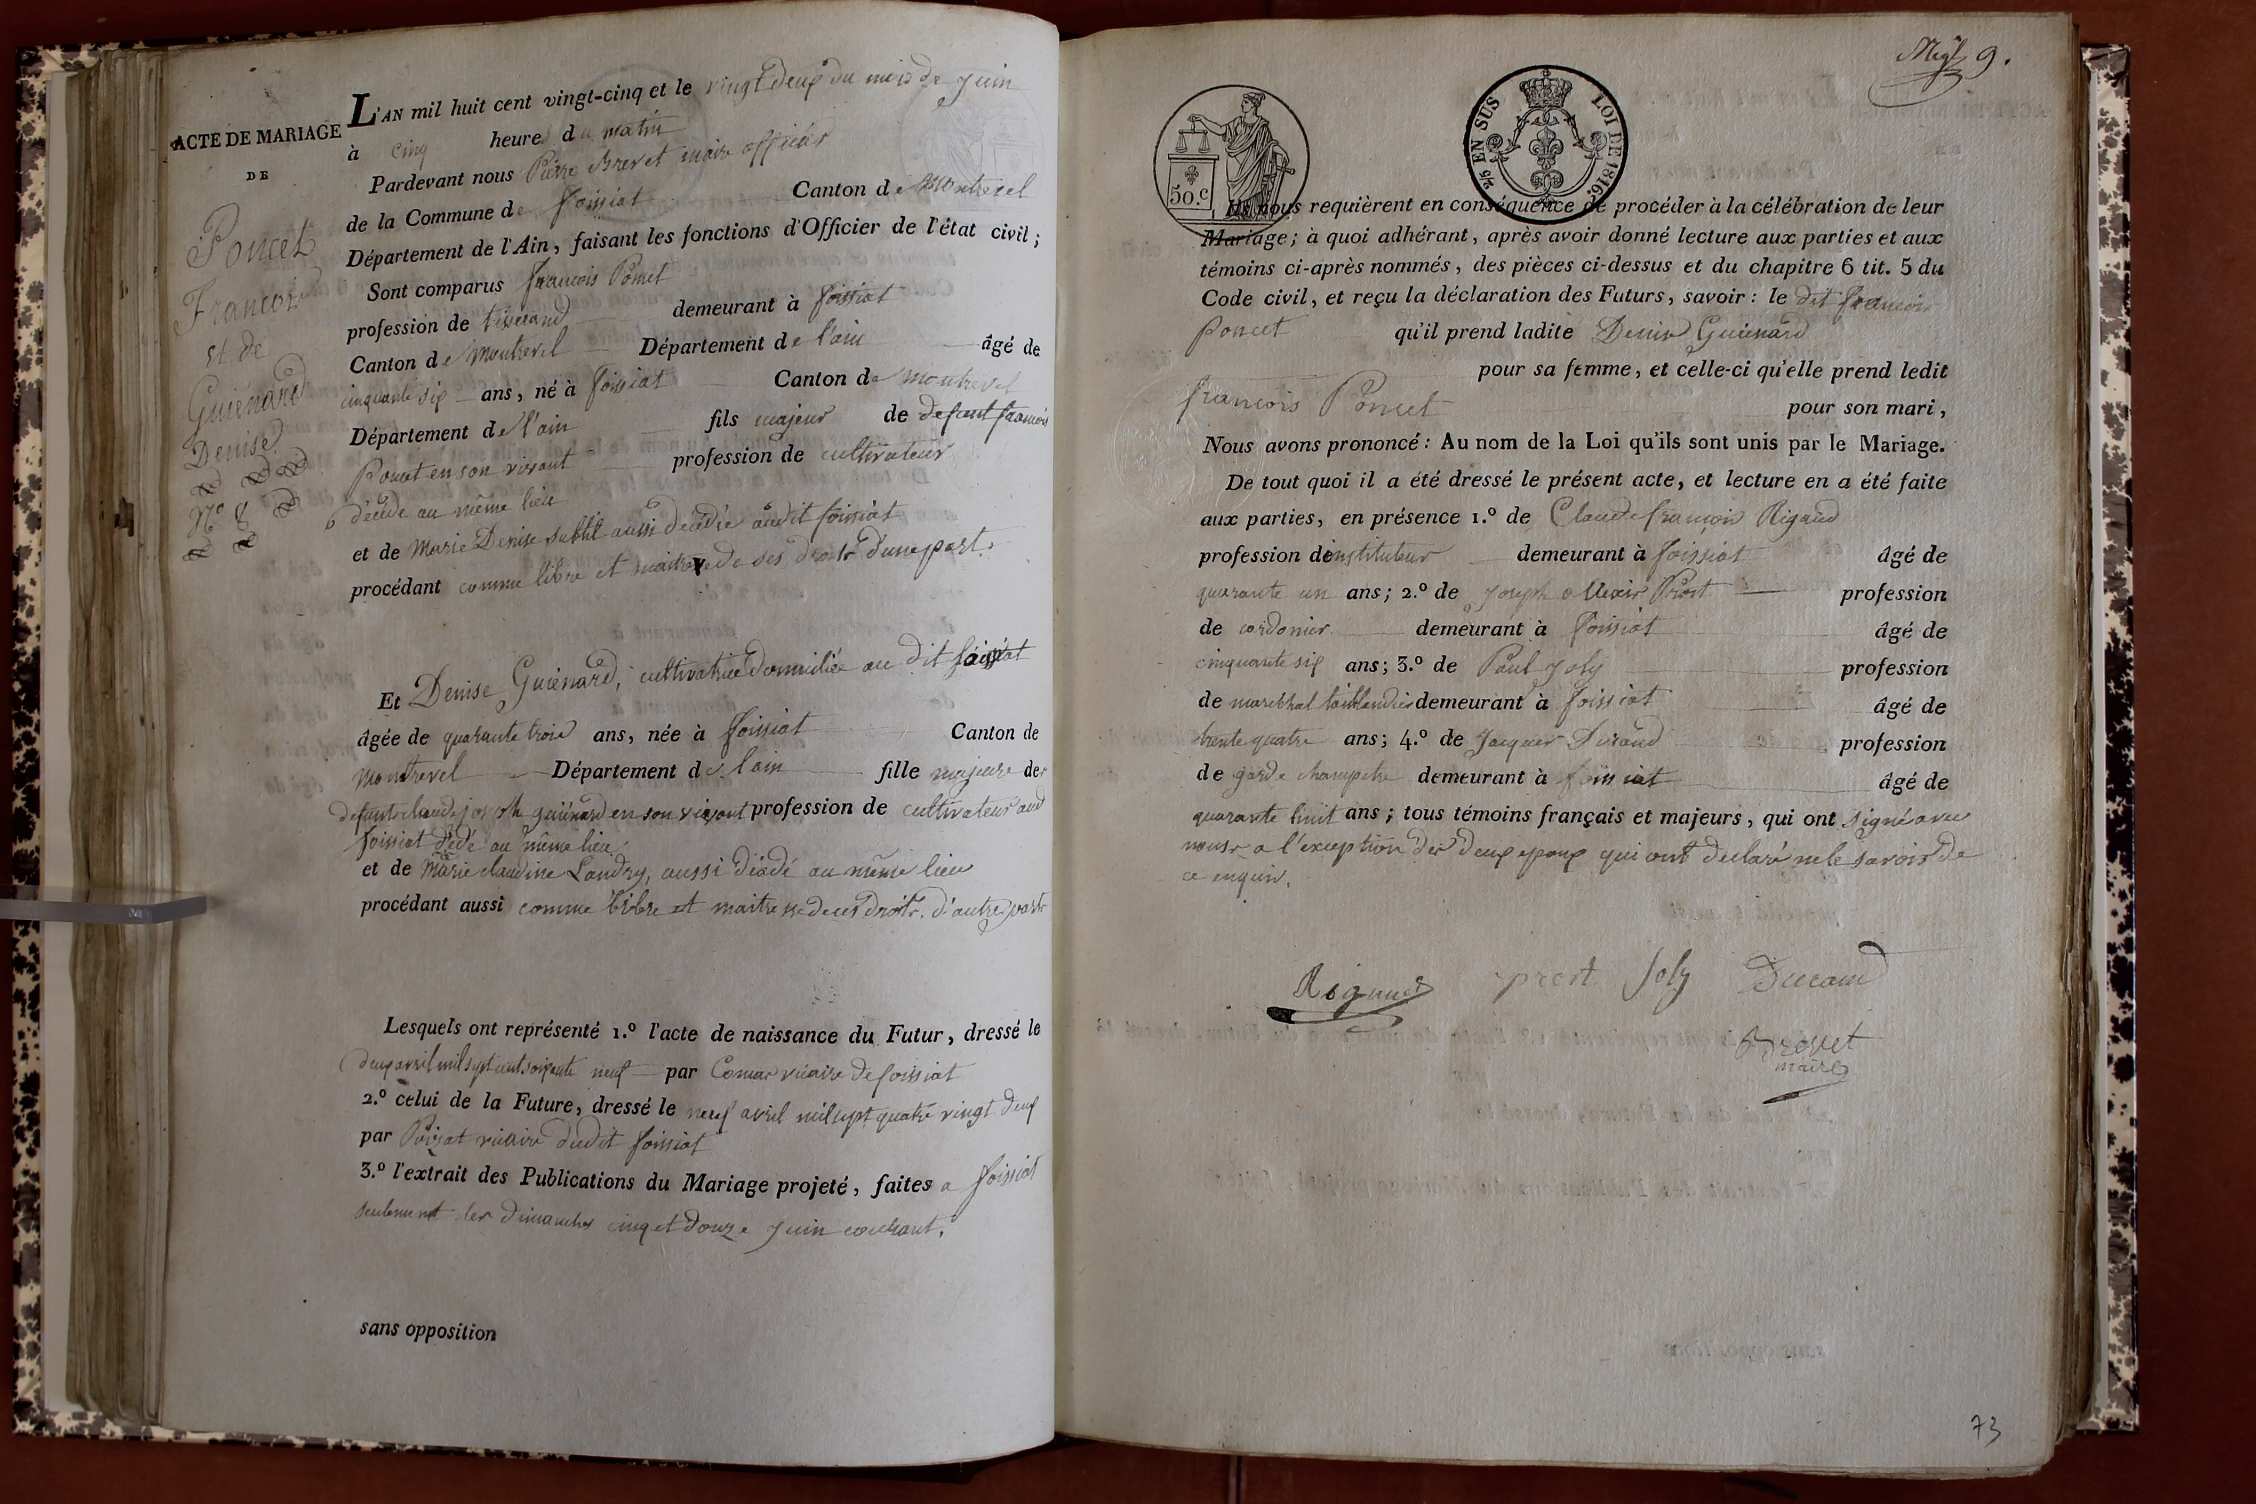 ACTE DE MARIAGE
DE
Poncet
Francois
et de
Guiénard
Denise
N.o 8
L'AN mil huit cent vingt-cinq et le vingt deux du mois de Juin
à cinq heures du matin
Pardevant nous Pierre Brevet maire officier
de la Commune de foissiat Canton de Montrevel
Département de l'Ain, faisant les fonctions d'Officier de l'état civil;
Sont comparus francois Poncet
profession de tisserand demeurant à foissiat
Canton de Montrevel Département de l'ain âgé de
cinquante six ans, né à foissiat Canton de montrevel
Département de l'ain fils majeur de defunt francois
Poncet en son vivant profession de cultivateur
décédé au même lieu
et de Marie Denise subtil aussi decedée audit foissiat
procédant comme libre et maitre de ses droits d'une part.
Et Denise Guiénard, cultivatrice domiciliée au dit foissiat
âgée de quarante trois ans, née à foissiat Canton de
Montrevel Département de l'ain fille majeure de
defunt claude joseph guiénard en son vivant profession de cultivateur aud
foissiat décédé au même lieu
et de Marie claudine Landry, aussi décédé au même lieu
procédant aussi comme libre et maitresse de ces droits. d'autre part
Lesquels ont représenté 1.o l'acte de naissance du Futur, dressé le
deux avril mil sept cent soixante neuf par Comas vicaire de foissiat
2.o celui de la Future, dressé le neuf avril mil sept quatre vingt deux
par Poizat vicaire dudit foissiat
3.o l'extrait des Publications du Mariage projeté, faites a foissiat
seulement les dimanches cinq et douze Juin courant.
sans opposition
9.
50.c
2/5 EN SUS LOI DE 1816.
Ils nous requièrent en conséquence de procéder à la célébration de leur
Mariage; à quoi adhérant, après avoir donné lecture aux parties et aux
témoins ci-après nommés, des pièces ci-dessus et du chapitre 6 tit. 5 du
Code civil, et reçu la déclaration des Futurs, savoir: le dit francois
Poncet qu'il prend ladite Denise Guiénard
pour sa femme, et celle-ci qu'elle prend ledit
francois Poncet pour son mari,
Nous avons prononcé: Au nom de la Loi qu'ils sont unis par le Mariage.
De tout quoi il a été dressé le présent acte, et lecture en a été faite
aux parties, en présence 1.o de Claude francois Rigaud
profession d'instituteur demeurant à foissiat âgé de
quarante un ans; 2.o de Joseph Allexis Prost profession
de cordonier demeurant à foissiat âgé de
cinquante six ans; 3.o de Paul Joly profession
de marechal taillandier demeurant à foissiat âgé de
trente quatre ans; 4.o de Jacques Durand profession
de garde champetre demeurant à foissiat âgé de
quarante huit ans; tous témoins français et majeurs, qui ont signé avec
nous a l'exception des deux epoux qui ont declaré ne le savoir de
ce enquis.
Rigaud prost Joly Durand
Brevet
maire
73